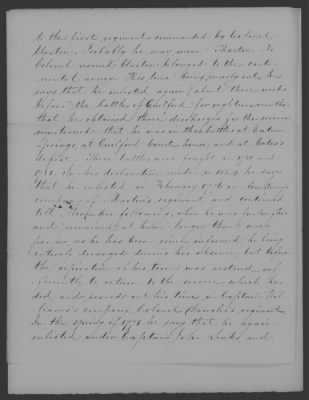 to the first regiment commanded by Colonel
Claxton. Probably he was named Thaxton. No
Colonel named Claxton belonged to the conti-
nental army. His time being nearly out, he
says that he enlisted again about three weeks
before the battle of Guilford for eighteen months.
that he obtained three discharges for the services
mentioned: that he was in the battles at Eutaw
Springs, at Guilford Court house, and at Gates's
defeat. These battles were fought in 1780 and
1781. In his declaration made in 1824 he says
that he enlisted in February 1776 in Armstrong's
company of Martin's regiment and continued
till November following, when he was furloughed
and remained at home longer than was
proper as he has been since informed, he being
entirely deranged during his absence, but before
the expiration of his term was restored suf-
ficiently to return to the service which he
did, and served out his time in Captain Wil-
liams's company, Colonel regiment
In the spring of 1778 he says that he again
enlisted under Captain John Leaks and